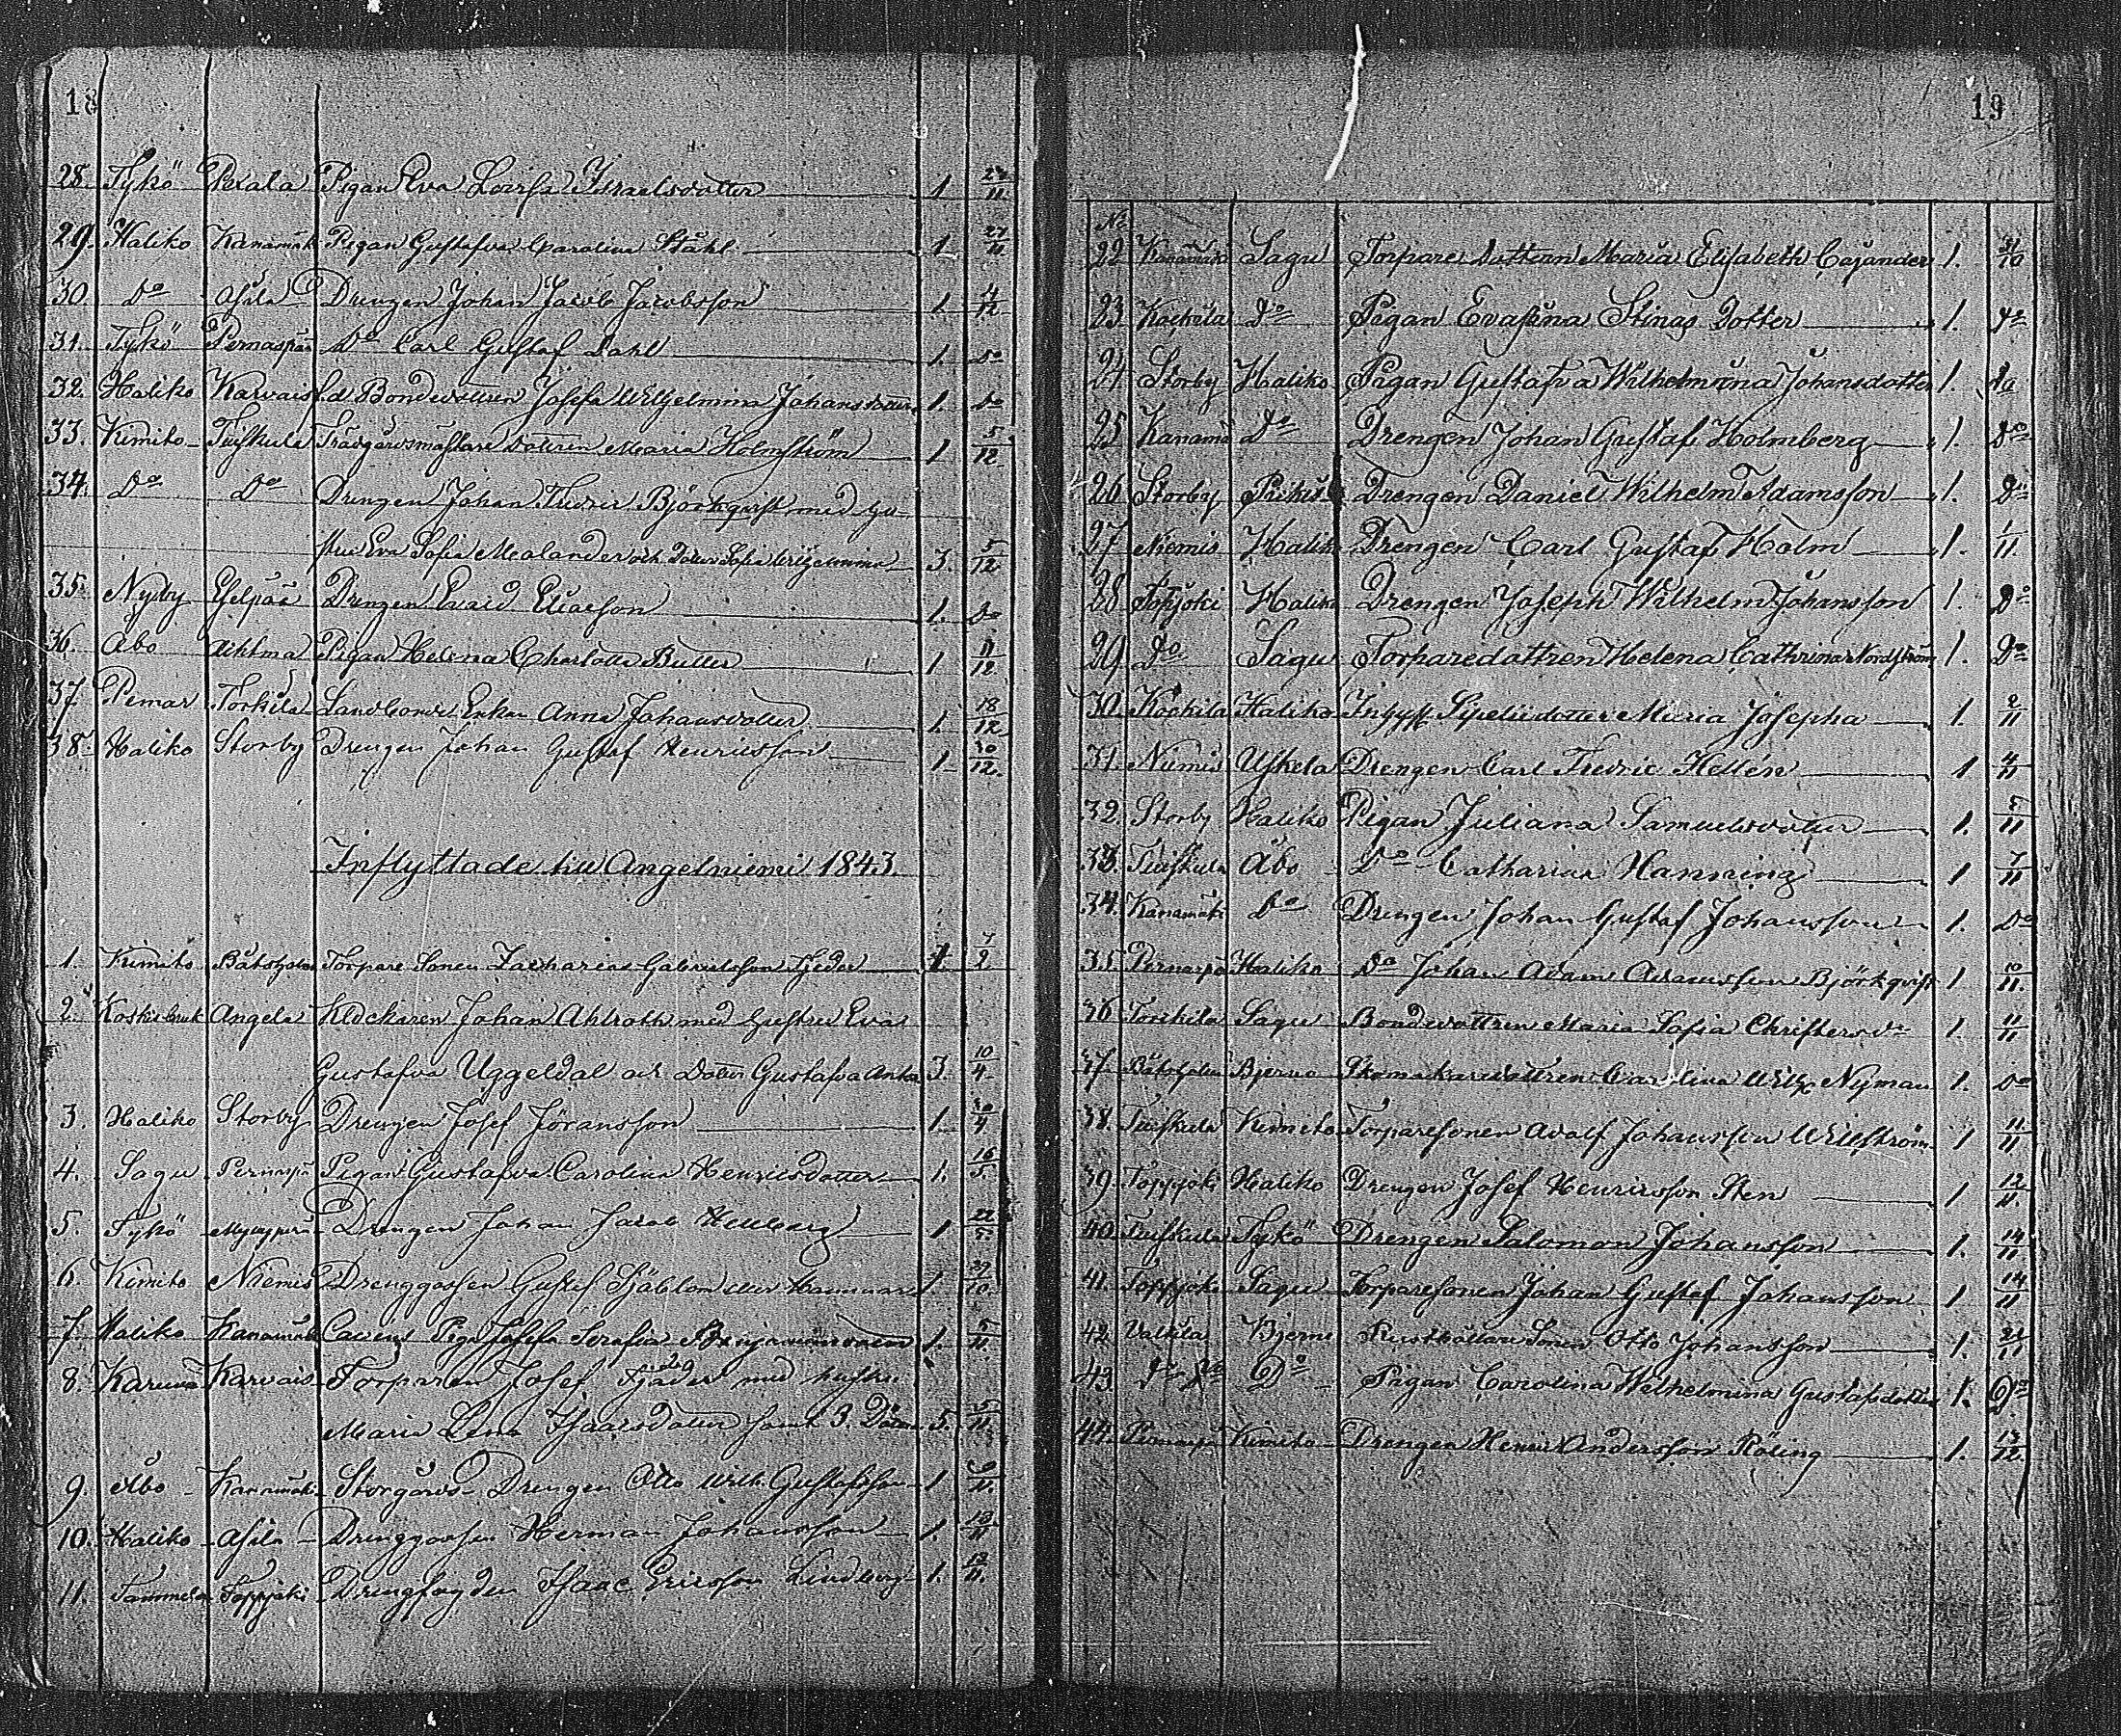 18
28. Tykö Pexala Pigan Eva Lovisa Israelsdotter 1. 27/11.
29. Haliko Kanamäk Pigan Gustafva Carolina Ståhl 1 27/11
30. Do Asila Drengen Johan Jacob Jacobsson 1 4/12
31. Tykö Pernaspää Do Carl Gustaf Dahl 1. Do
32. Haliko Karvais f.d. Bondedottren Josefa Wilhelmina Johansdotter 1. Do
33. Kimito Tuiskula Trädgårdsmästare Dottren Maria Holmström 1 5/12
34. Do Do Drengen Johan Fredric Björkqvist med Hu-
stru Eva Sofia Mealander och Dotter Sofia Wilhelmina 3. 5/12
35. Nyby Eselpää Drengen Evaid Eliasson 1. Do
36. Åbo Pigan Helena Charlotta Butter 1 11/12
37 Pemar Torkila Landbonde Enkan Anna Johansdotter 1. 18/12
38. Haliko Storby Drengen Johan Gustaf Henricsson 1 30/12.
Inflyttade till Angelniemi 1843
1. Kimito Båtsholm Torpare Sonen Zacharias Gabrielsson Fjeder 1. 7/2
2. Koskis bruk Angela Klockaren Johan Ahlroth med Hustru Eva
Gustafva Uggeldal och Dotter Gustafva Anta 3. 10/4
3. Haliko Storby Drengen Josef Jöransson 1. 30/4
4. Sagu Pernaspä Pigan Gustafva Carolina Henricsdotter 1. 16/5.
5. Tykö Drengen Johan Jacob Hellberg 1 22/5
6. Kimito Niemis Drenggossen Gustaf Sjöblom eller Hammar 1. 29/10.
7. Haliko Kanamäk Pigan Josefa Serafia 1. 5/11.
8. Karuna Karvais Torparen Josef Fjäder med hustru
Maria Lena Isaacsdotter samt 3 Döttrar 5. 5/11.
9. Åbo Kanamäki Storgårds Drengen Otto Wilh. Gustafsson 1 6/11.
10. Haliko Asila Drenggossen Herman Johansson 1. 12/11
11. Tammela Toppjoki Drengfogden Isaac Ericsson Lindberg 1. 12/11.
19
No
22 Kanamäki Sagu Torpare Dottern Maria Elisabeth Cajander 1. 31/10
23 Kockila Do Pigan Evastina Stinas Dotter 1. Do
24 Storby Haliko Pigan Gustafva Wilhelmina Johansdotter 1. Do
25 Kanamä Do Drengen Johan Gustaf Holmberg 1. Do
26 Storby Drengen Daniel Wilhelm Adamsson 1. Do
27 Niemis Haliko Drengen Carl Gustaf Holm 1. 1/11.
28 Topjoki Haliko Drengen Joseph Wilhelm Johansson 1. Do
29 Do Sagu Torparedottren Helena Cathrina Nordström 1. Do
30. Kockila Haliko Maria Josepha 1. 2/11
31. Niemis Uskela Drengen Carl Fredric Hellén 1 4/11
32. Storby Haliko Pigan Juliana Samuelsdotter 1. 5/11
33. Tuiskula Åbo Do Catharina Hanning 1 7/11
34. Kanamäki Do Drengen Johan Gustaf Johansson 1. Do
35. Pernaspä Haliko Do Johan Adam Adamsson Björkqvist 1 10/11.
36 Torkila Sagu Bondedottren Maria Sofia Christersdr 1. 11/11
37 Båtsholm Bjerno Skomakaredottren Carolina Wilh. Nyman 1. Do
38. Tuiskula Kimito Torparesonen Adolf Johansson Willström 1 11/11
39 Toppjoki Haliko Drengen Josef Henricsson Sten 1 12/11.
40. Tuiskula Tykö Drengen Salomon Johansson 1. 14/11
41. Toppjoki Sagu Torparesonen Johan Gustaf Johansson 1 14/11
42 Valkila Bjerno Rusthållare Sonen Otto Johansson 1. 21/11
43. Do Do Pigan Carolina Wilhelmina Gustafsdotter 1. Do
44. Pernaspä Kimito Drengen Henric Andersson Röling 1. 13/12.